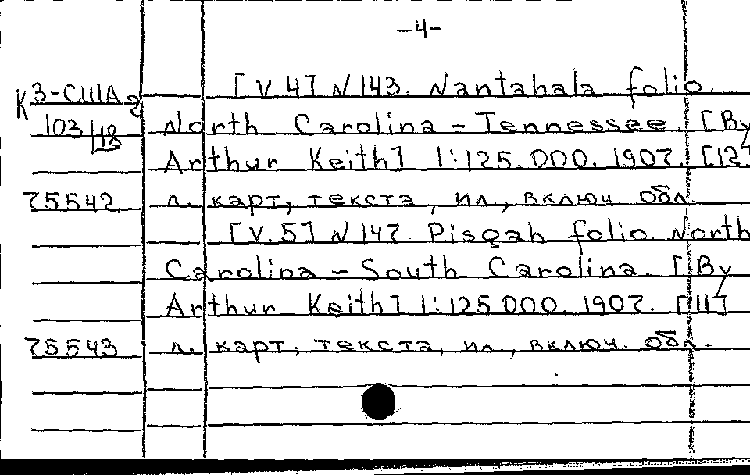 -4-
[V.4] N 143. Nantahala folio.
К 3-США
103 | 12 North Carolina - Tennessee. [By
Arthur Keith] 1:125.000. 1907. [12]
75542 л. карт, текста, ил., включ. обл.
[V.5] N 147. Pisgah folio. North
Carolina - South Carolina. [By
Arthur Keith] 1:125.000. 1907. [11]
75543 л. карт, текста, ил, включ. обл.